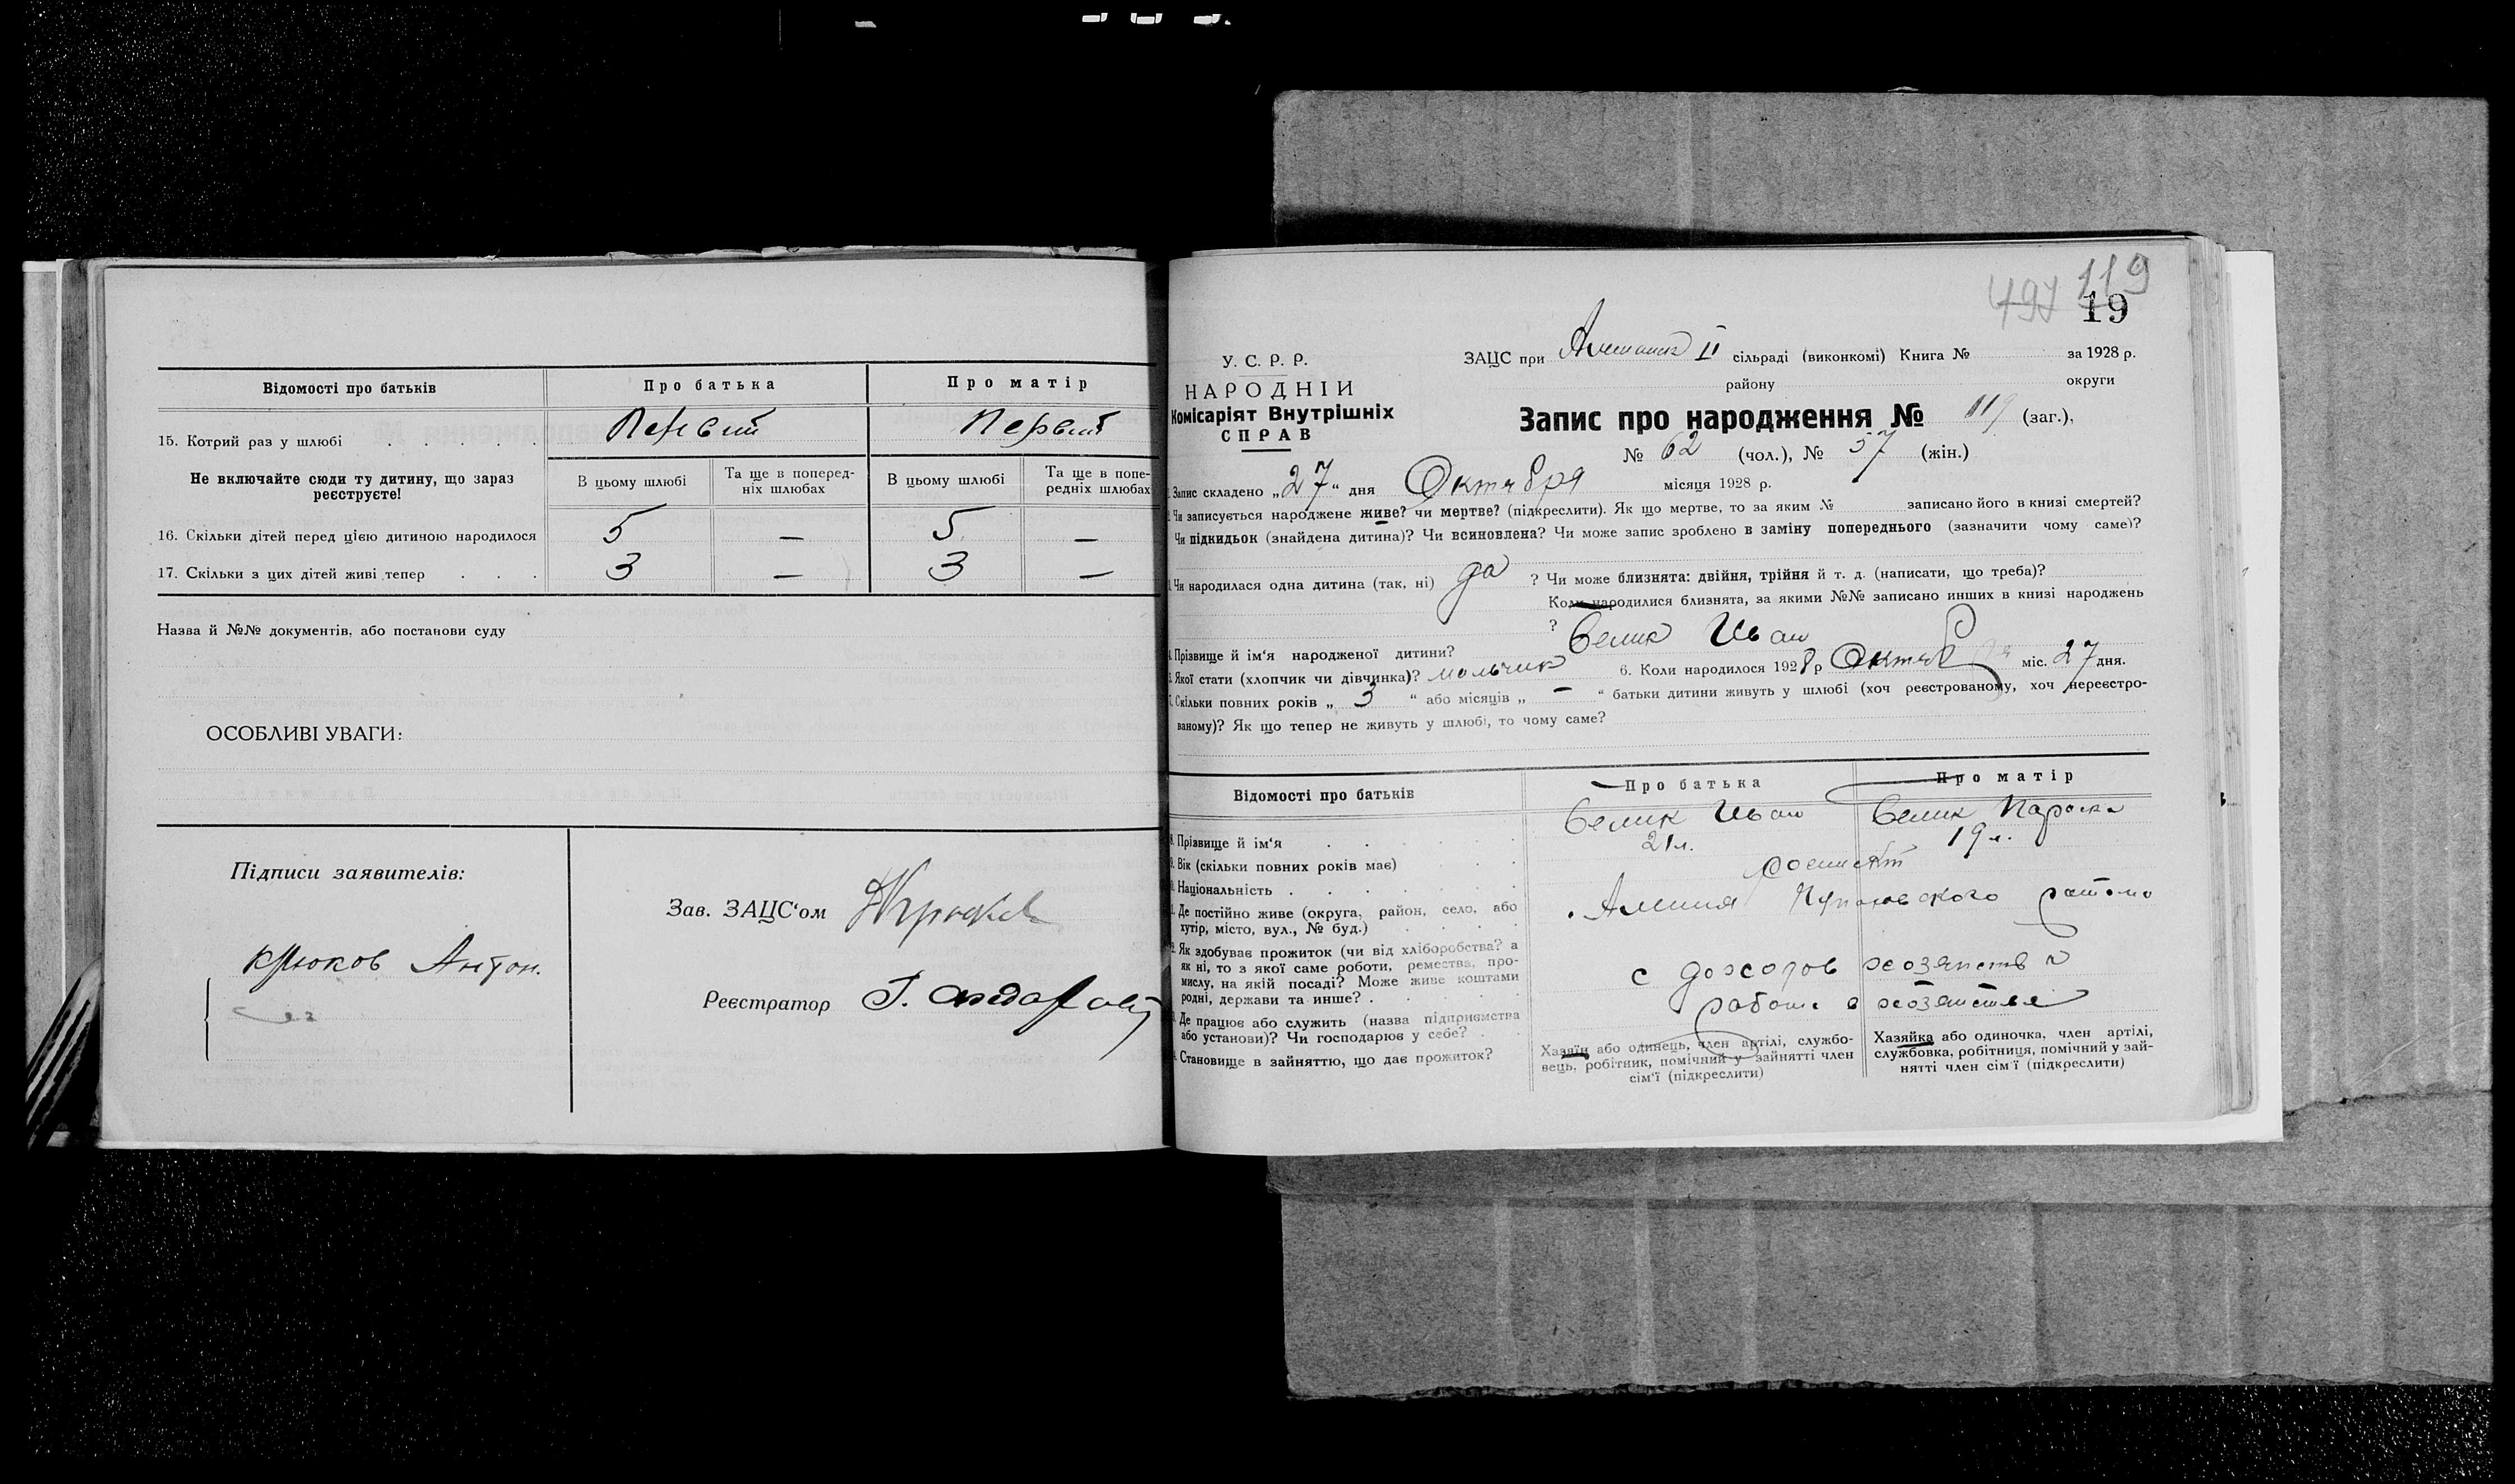 Відомості про батьків
Про батька
Про матір
15. Котрий раз у шлюбі . . .
Первий
Первий
Не включайте сюди ту дитину, що зараз реєструєте!
В цьому шлюбі
Та ще в поперед-
ніх шлюбах
В цьому шлюбі
Та ще в попе-
редніх шлюбах
16. Скільки дітей перед цією дитиною народилося
5 — 5 —
17. Скільки з цих дітей живі тепер . . .
3 — 3 —
Назва й №№ документів, або постанови суду
ОСОБЛИВІ УВАГИ:
Підписи заявителів:
Крюков Антон.
Зав. ЗАЦС'ом
Реєстратор
497 119
19
У. С. Р. Р.
НАРОДНІЙ
Комісаріят Внутрішніх
СПРАВ
ЗАЦС при II сільраді (виконкомі) Книга № за 1928 р.
району округи
Запис про народження № 119 (заг.),
№ 62 (чол.), № 57 (жін.)
Запис складено „27" дня Октября місяця 1928 р.
Чи записується народжене живе? чи мертве? (підкреслити). Як що мертве, то за яким № записано його в книзі смертей?
Чи підкидьок (знайдена дитина)? Чи всиновлена? Чи може запис зроблено в заміну попереднього (зазначити чому саме)?
Чи народилася одна дитина (так, ні) да ? Чи може близнята: двійня, трійня й т. д. (написати, що треба)?
Коли народилися близнята, за якими №№ записано инших в книзі народжень
?
Прізвище й ім'я народженої дитини? Белик Иван
Якої стати (хлопчик чи дівчинка)? мальчик 6. Коли народилося 1928 р Октября міс. 27 дня.
Скільки повних років „ 3 " або місяців „ — " батьки дитини живуть у шлюбі (хоч реєстрованому, хоч нереєстро-
ваному)? Як що тепер не живуть у шлюбі, то чому саме?
Відомості про батьків
Про батька
Про матір
Прізвище й ім'я . . . . .
Белик Иван
Белик Параска
Вік (скільки повних років має) . .
21 л.
19 л.
Національність . . . . . .
Де постійно живе (округа, район, село, або
хутір, місто, вул., № буд.) . . . .
Як здобуває прожиток (чи від хліборобства? а
як ні, то з якої саме роботи, ремества, про-
мислу, на якій посаді? Може живе коштами
родні, держави та инше? . . . .
с доходов хозяйства
Де працює або служить (назва підприємства
або установи)? Чи господарює у себе? . .
работа в хозяйстве
Становище в зайняттю, що дає прожиток?
Хазяїн або одинець, член артілі, службо-
вець, робітник, помічний у зайнятті член
сім'ї (підкреслити)
Хазяйка або одиночка, член артілі,
службовка, робітниця, помічний у зай-
нятті член сім'ї (підкреслити)